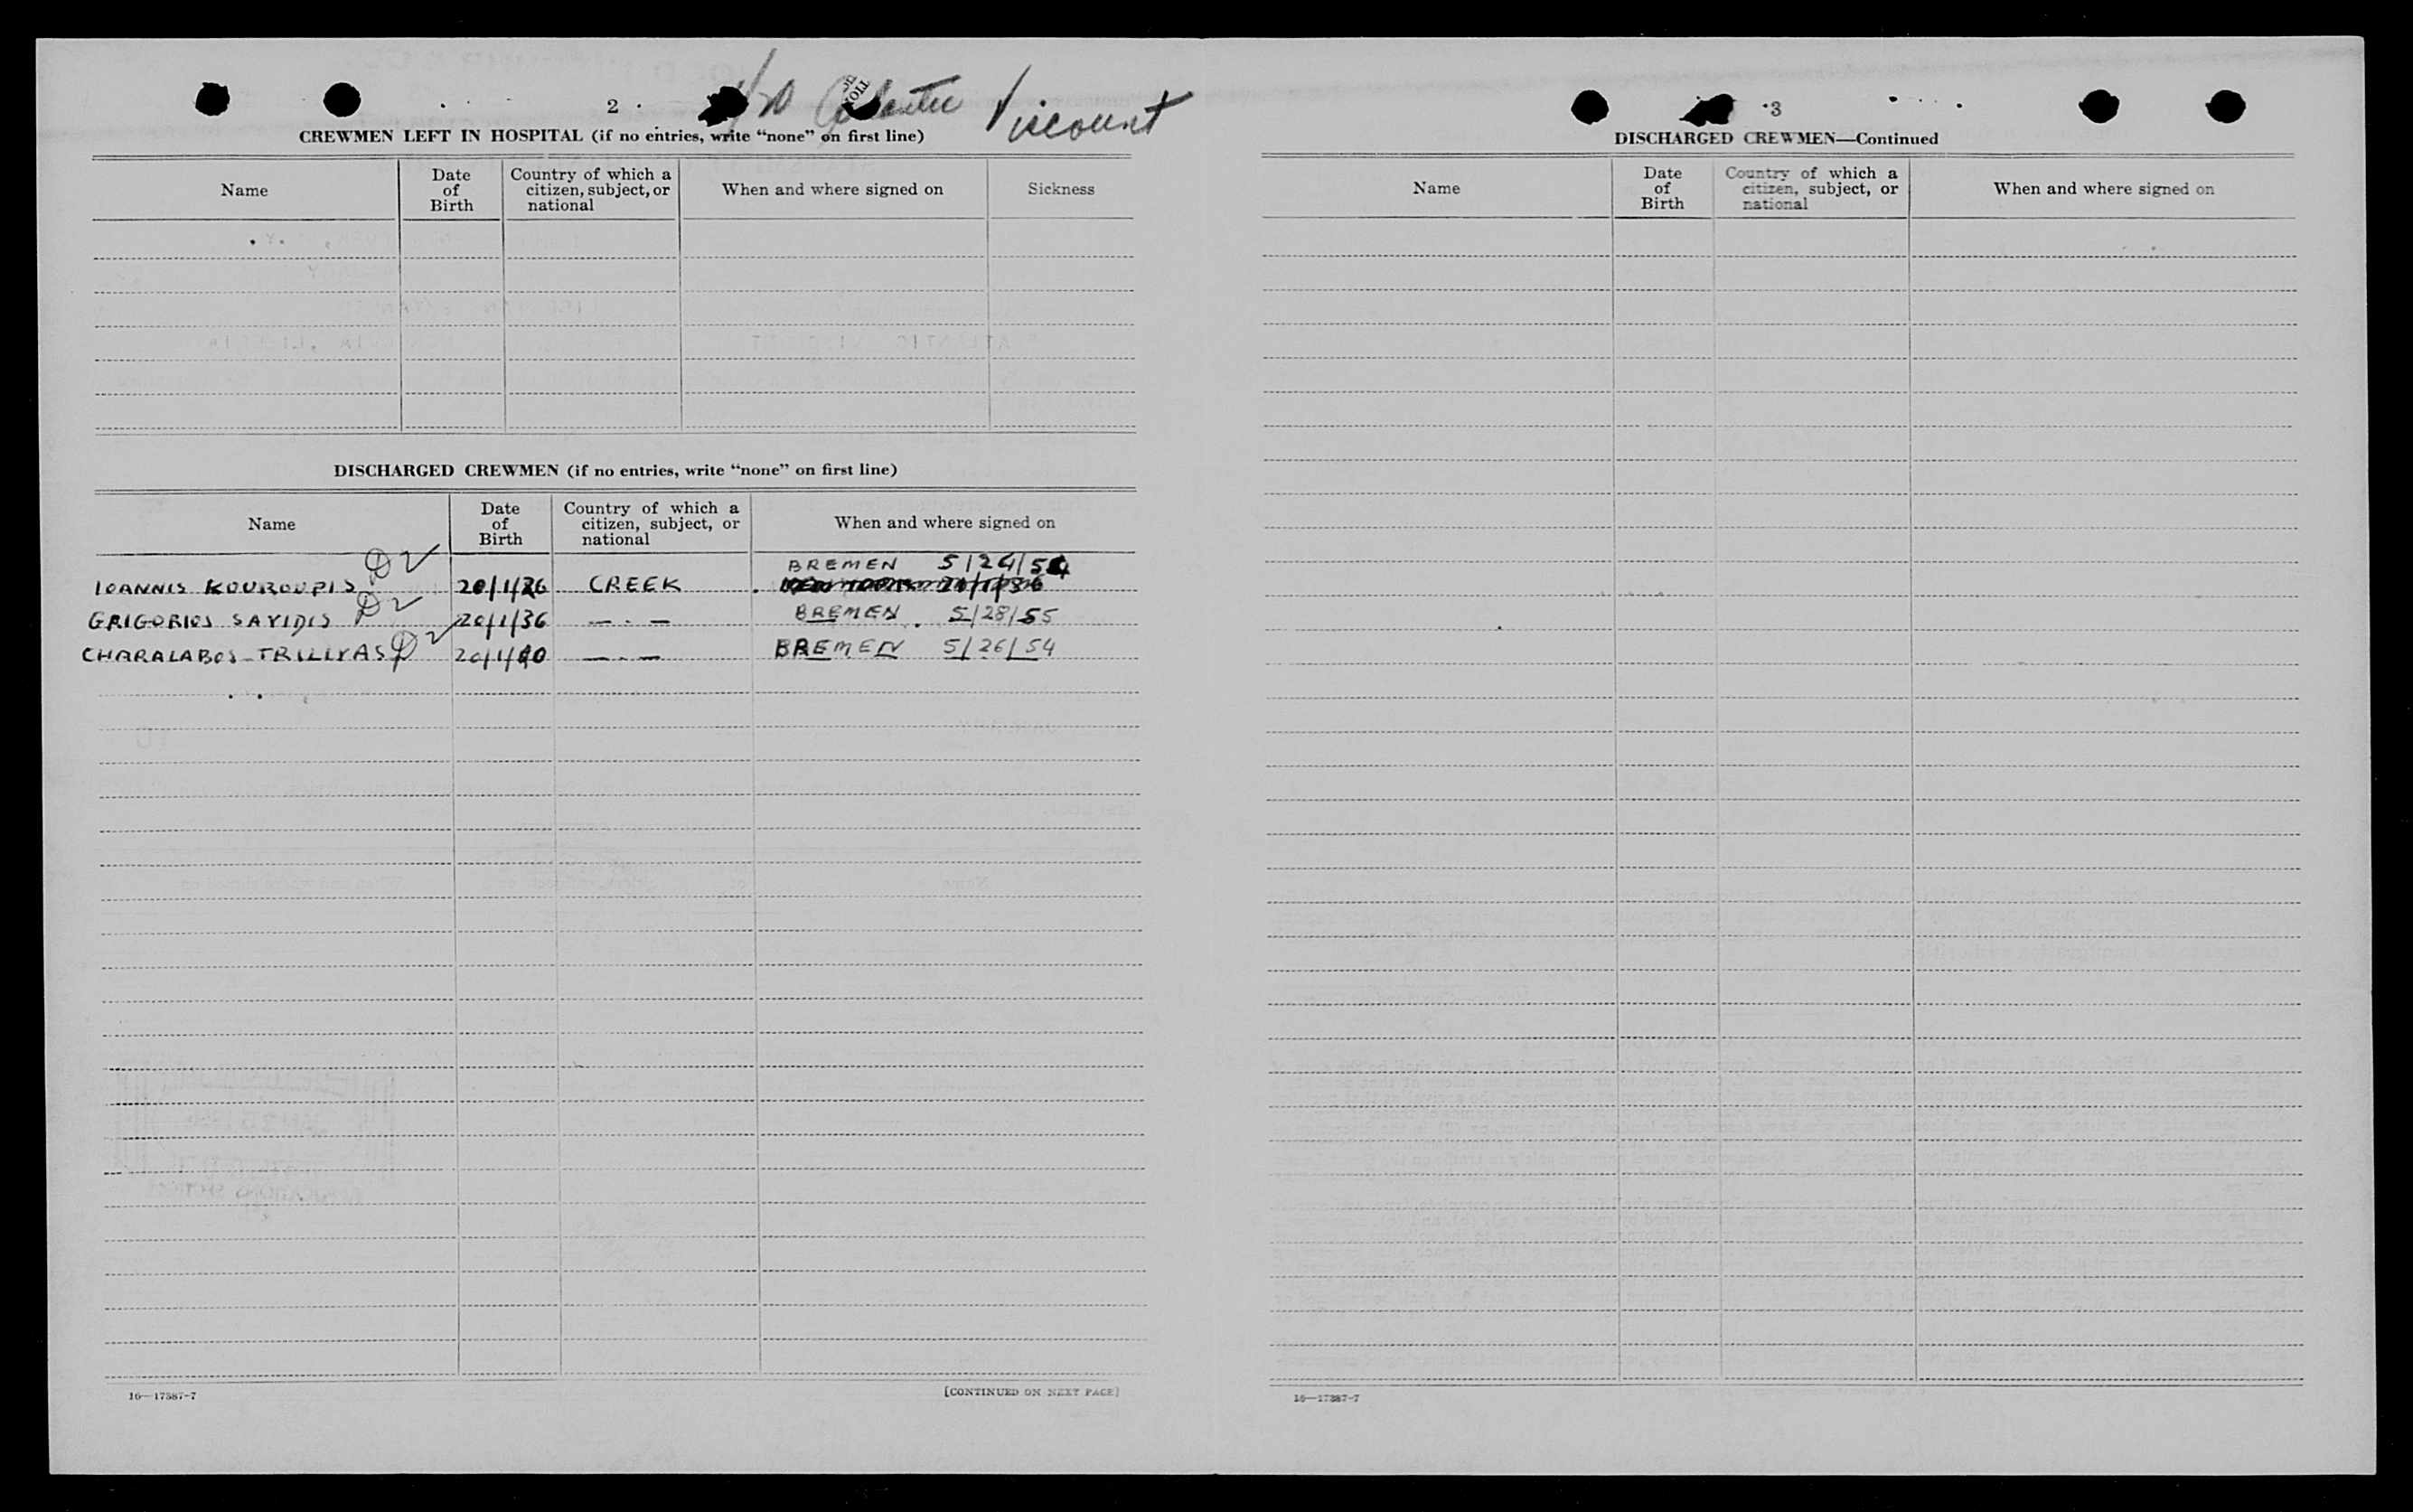 2
Atlantic Viscount
CREWMEN LEFT IN HOSPITAL (if no entries, write “none” on first line)
Name Date of Birth Country of which a citizen, subject, or national When and where signed on Sickness
DISCHARGED CREWMEN (if no entries, write “none” on first line)
Name Date of Birth Country of which a citizen, subject, or national When and where signed on
D2
BREMEN 5/24/54
IOANNIS KOUROUPIS 20/1/26 CREEK
GRIGORIOS SAVIDIS D2 20/1/36 —.— BREMEN 5/28/55
CHARALABOS TRILLYAS D2 —.— BREMEN 5/26/54
16—17387-7 [CONTINUED ON NEXT PAGE]
3
DISCHARGED CREWMEN—Continued
Name Date of Birth Country of which a citizen, subject, or national When and where signed on
16—17387-7